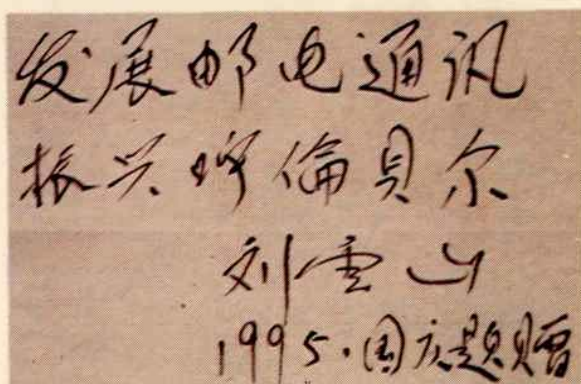 发展邮电通讯
振兴呼倫贝尔
刘云山
1995.国庆题赠